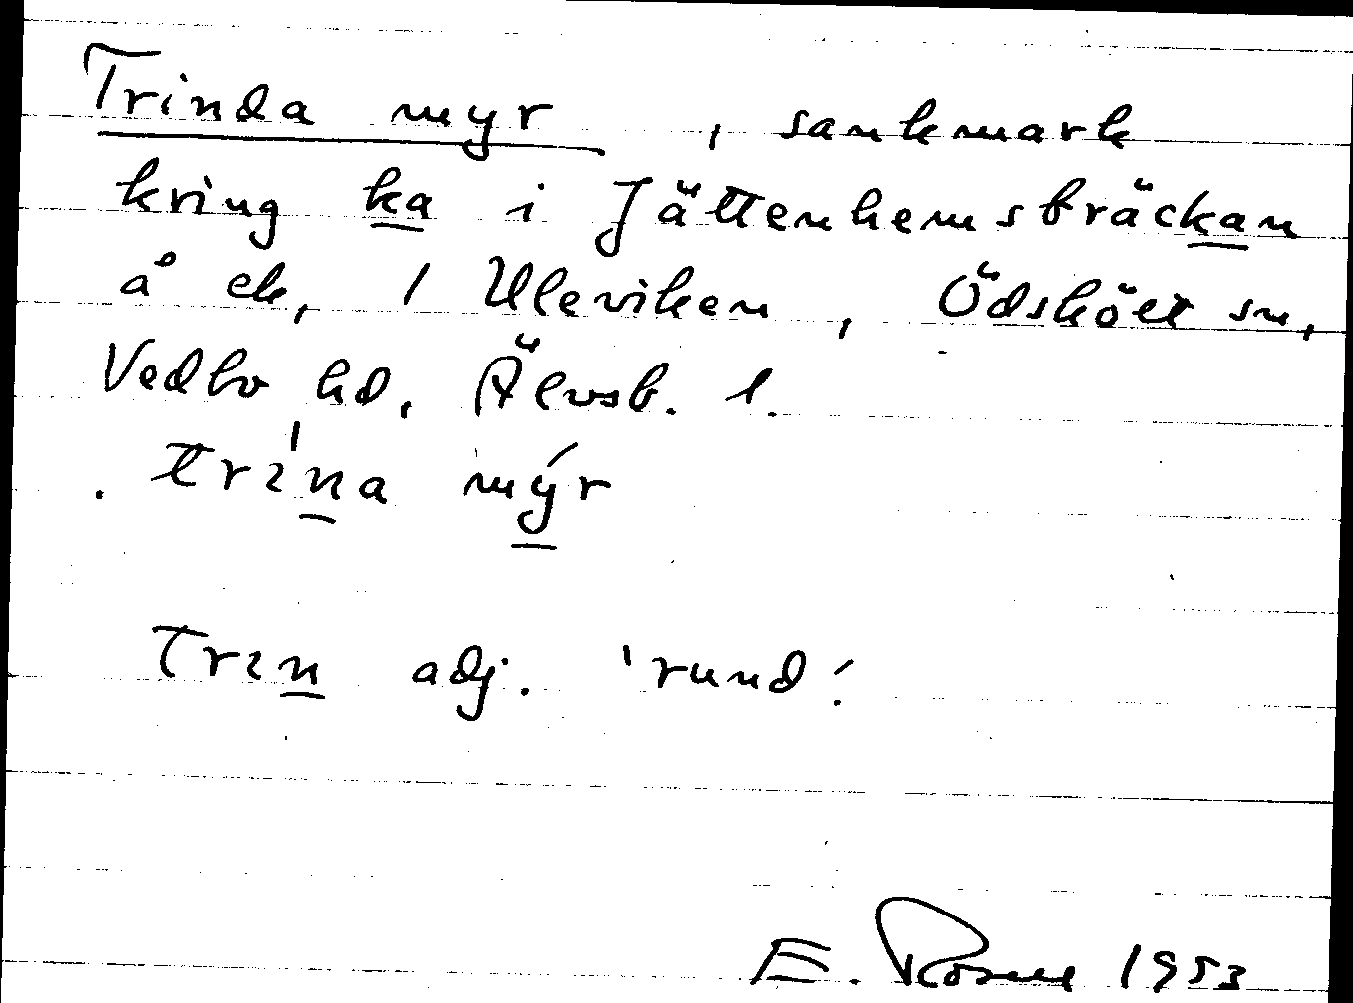 Trinda myr, sankmark
kring ka i Jättenhemsbräckan
å ek, 1 Uleviken, Ödskölt sn,
Vedbo hd, Älvsb. l.
. trına mýr
Trın adj. 'rund'.
E. Rosell 1953